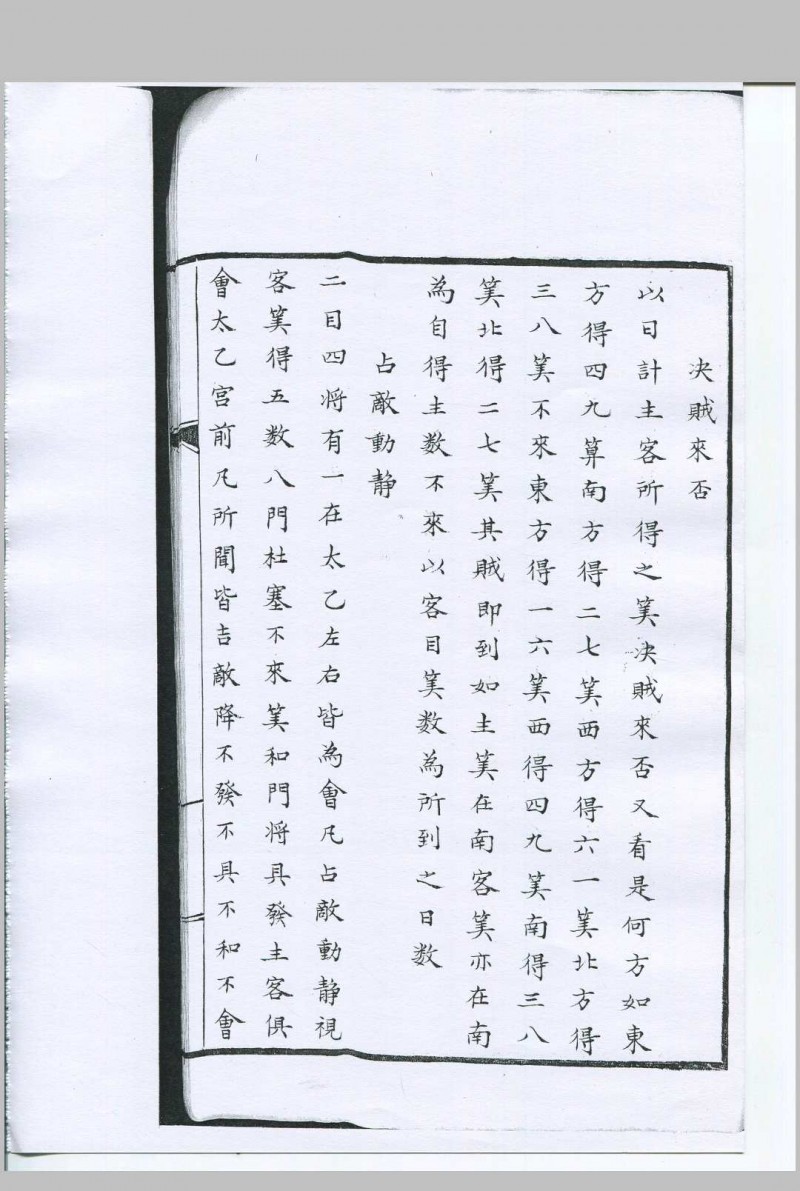 決賊來否
以日計主客所得之筭決賊來否又看是何方如東
方得四九算南方得二七筭西方得六一筭北方得
三八筭不來東方得一六筭西得四九筭南得三八
筭北得二七筭其賊即到如主筭在南客筭亦在南
為自得主数不來以客目筭数為所到之日数
占敵動静
二目四将有一在太乙左右皆為會凡占敵動静視
客筭得五数八門杜塞不來筭和門将具發主客俱
會太乙宫前凡所聞皆吉敵降不發不具不和不會